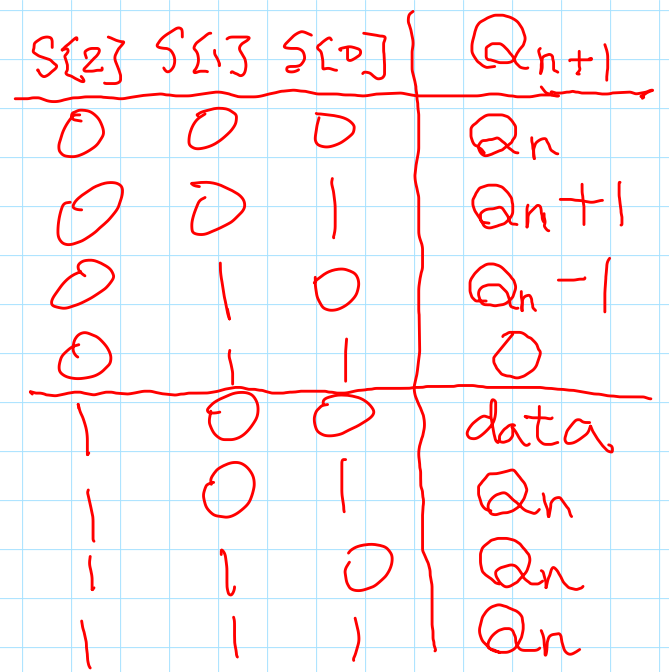 S[2] S[1] S[0] Qn+1
0 0 0 Qn
0 0 1 Qn+1
0 1 0 Qn-1
0 1 1 0
1 0 0 data
1 0 1 Qn
1 1 0 Qn
1 1 1 Qn